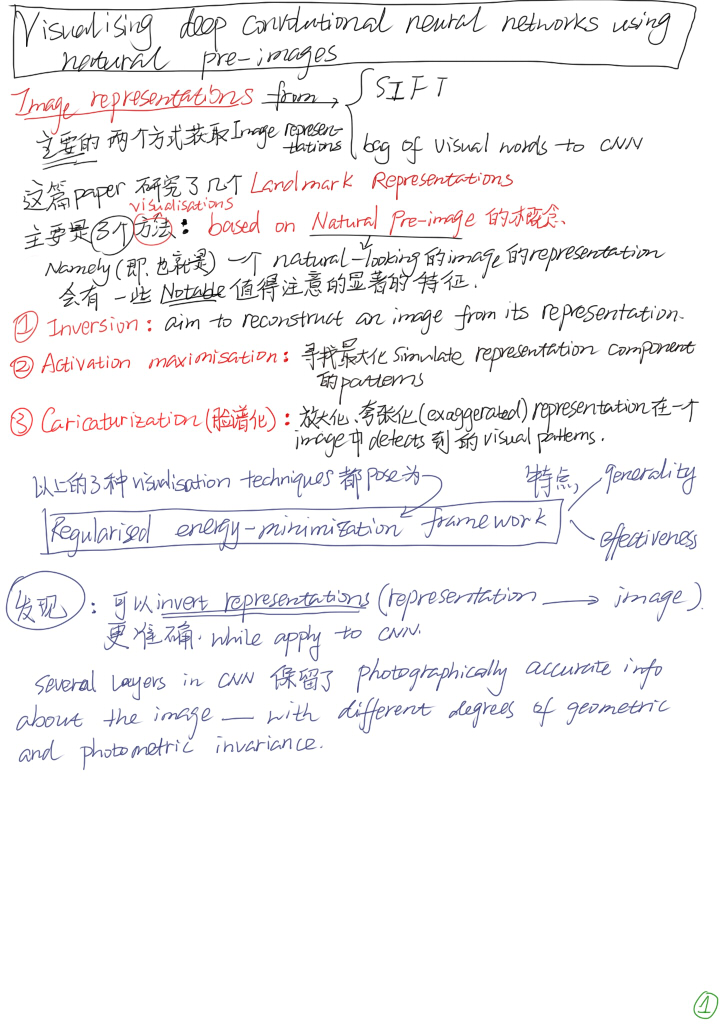 Visualising deep convolutional neural networks using
natural pre-images
Image representations from → SIFT
主要的两个方式获取Image represen-
tations
bag of visual words to CNN
这篇paper 研究了几个 Landmark Representations
visualisations
主要是3个方法: based on Natural Pre-image 的概念.
Namely (即.也就是) 一个 natural-looking的image的representation
会有一些 Notable 值得注意的显著的特征.
① Inversion: aim to reconstruct an image from its representation.
② Activation maximisation: 寻找最大化 Simulate representation component
的patterns
③ Caricaturization (脸谱化): 放大化、夸张化(exaggerated) representation在一个
image中detects到的visual patterns.
以上的3种visualisation techniques 都pose为
特点, generality
Regularised energy-minimization framework
effectiveness
发现: 可以invert representations (representation → image)
更准确. while apply to CNN.
Several layers in CNN 保留了 photographically accurate info
about the image — with different degrees of geometric
and photometric invariance.
1